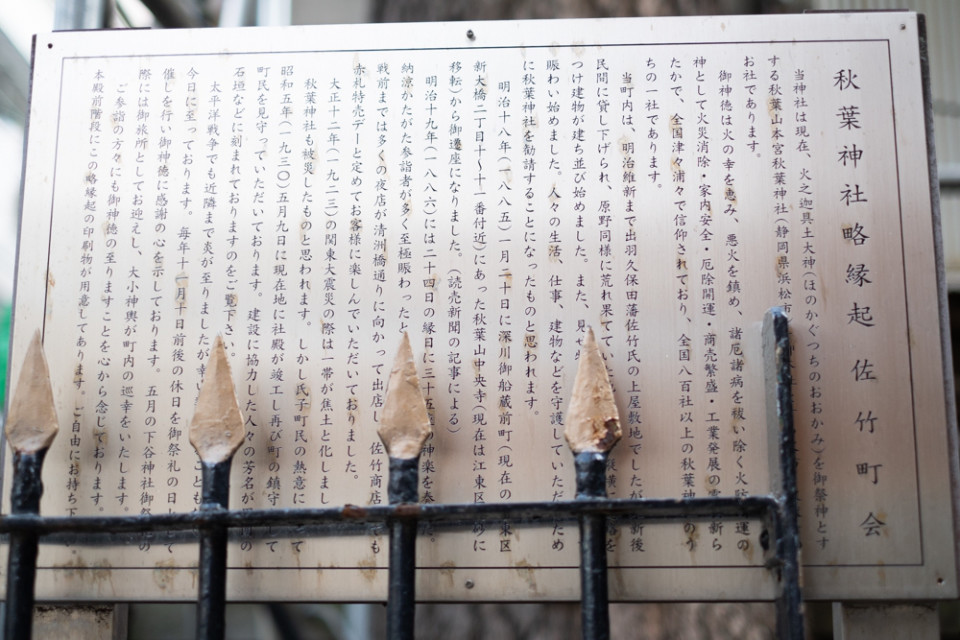 秋葉神社略縁起 佐竹町会
当神社は現在、火之迦具土大神(ほのかぐつちのおおかみ)を御祭神とす
する秋葉山本宮秋葉神社(静岡県浜松市
お社であります。
御神徳は火の幸を恵み、悪火を鎮め、諸厄諸病を祓い除く火防 運の
神として火災消除・家内安全・厄除開運・商売繁盛・工業発展の 新ら
たかで、全国津々浦々で信仰されており、全国八百社以上の秋葉神 のう
ちの一社であります。
当町内は、明治維新まで出羽久保田藩佐竹氏の上屋敷地でしたが 新後
民間に貸し下げられ、原野同様に荒れ果てていた を
つけ建物が建ち並び始めました。また、見せ
賑わい始めました。人々の生活、仕事、建物などを守護していただ ため
に秋葉神社を勧請することになったものと思われます。
明治十八年(一八八五)一月二十日に深川御船蔵前町(現在の 東区
新大橋二丁目十〜十一番付近)にあった秋葉山中央寺(現在は江東区 に
移転)から御遷座になりました。(読売新聞の記事による)
明治十九年(一八八六)には二十四日の縁日に三十五 の神楽を奉
納涼かたがた参詣者が多く至極賑わったと
戦前までは多くの夜店が清洲橋通りに向かって出店し 佐竹商店 でも
赤札特売デーと定めてお客様に楽しんでいただいておりました。
大正十二年(一九二三)の関東大震災の際は一帯が焦土と化しまし
秋葉神社も被災したものと思われます。しかし氏子町民の熱意に って
昭和五年(一九三〇)五月九日に現在地に社殿が竣工し再び町の鎮守 して
町民を見守っていただいております。建設に協力した人々の芳名が の
石垣などに刻まれておりますのをご覧下さい。
太平洋戦争でも近隣まで炎が至りましたが幸い ことも
今日に至っております。毎年十一月十日前後の休日を御祭礼の日 て
催しを行い御神徳に感謝の心を示しております。五月の下谷神社御祭 の
際には御旅所としてお迎えし、大小神輿が町内の巡幸をいたします。
ご参詣の方々にも御神徳の至りますことを心から念じております。
本殿前階段にこの略縁起の印刷物が用意してあります。ご自由にお持ち下